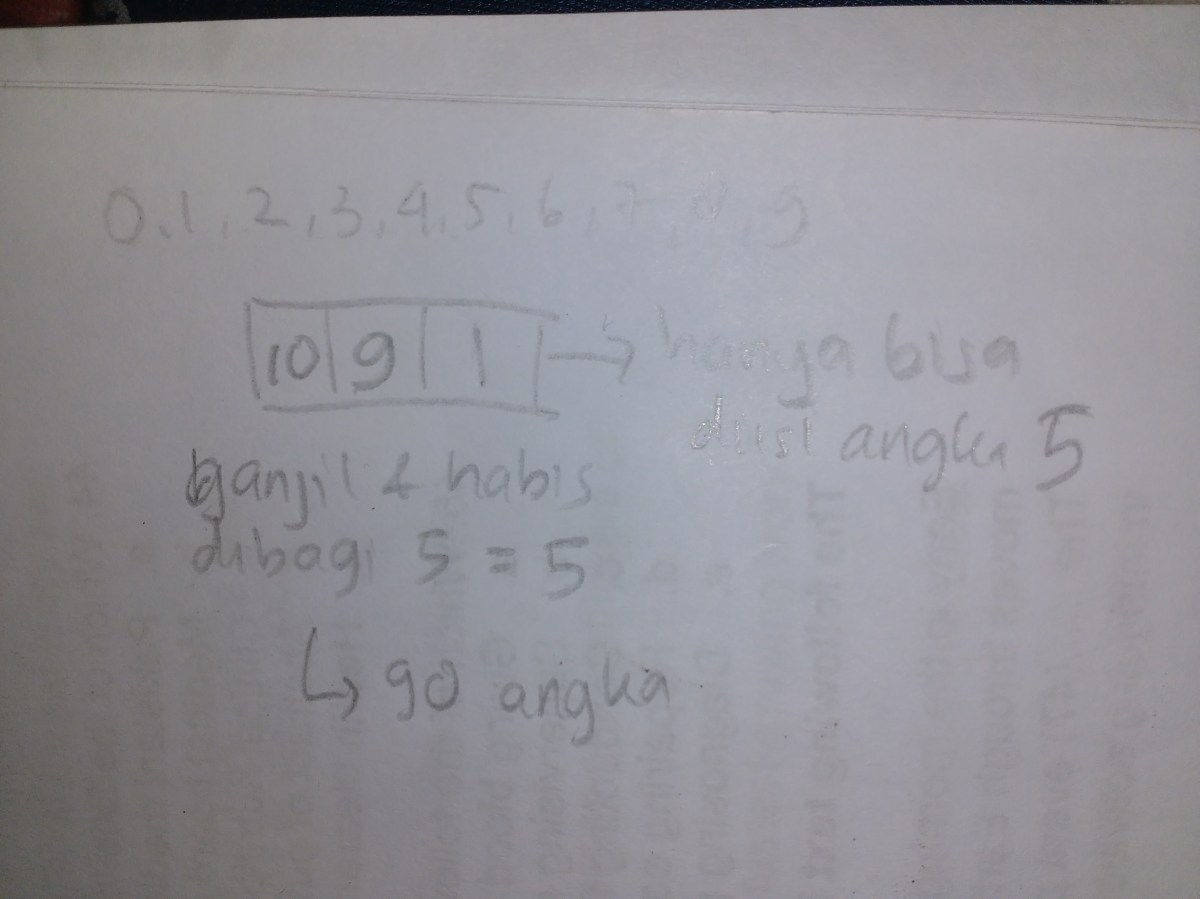 0,1,2,3,4,5,6,7,8,9
10 9 1 → hanya bisa
diisi angka 5
ganjil & habis
dibagi 5 = 5
↳ 90 angka